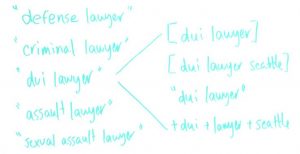 "defense lawyer"
"criminal lawyer"
"dui lawyer"
"assault lawyer"
"sexual assault lawyer"
[dui lawyer]
[dui lawyer seattle]
"dui lawyer"
+dui +lawyer +seattle